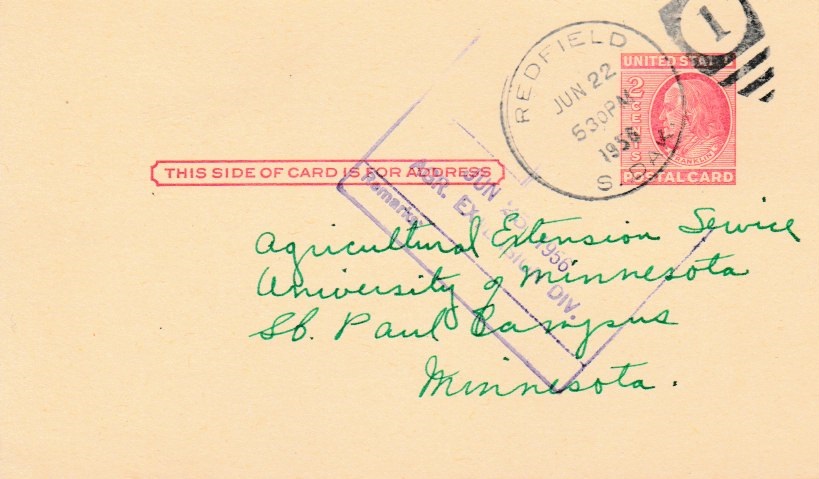 REDFIELD
JUN 22
530PM
1956
S. DAK.
1
UNITED STATES
2 CENTS
FRANKLIN
POSTAL CARD
THIS SIDE OF CARD IS FOR ADDRESS
JUN 25 1956
AGR. EXTENSION DIV.
Remarks
Agricultural Extension Service
University of Minnesota
St. Paul Campus
Minnesota.